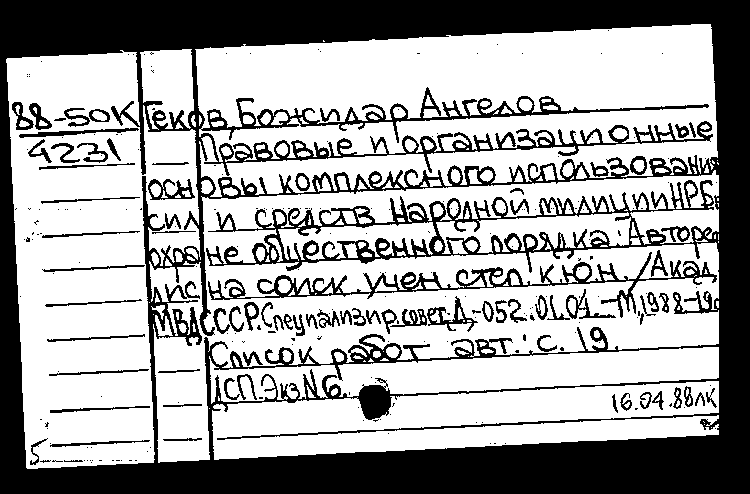 88-50К Геков, Божидар Ангелов.
4231 Правовые и организационные
основы комплексного использования
сил и средств Народной милиции НРБ в
охране общественного порядка: Автореф.
дис на соиск. учен. степ. к.ю.н. / Акад.
МВД СССР. Специализир. совет Д-052.01.04. - М, 1988-19с
Список работ авт.: с. 19.
ДСП. Экз N6.
16.04.88лк
5